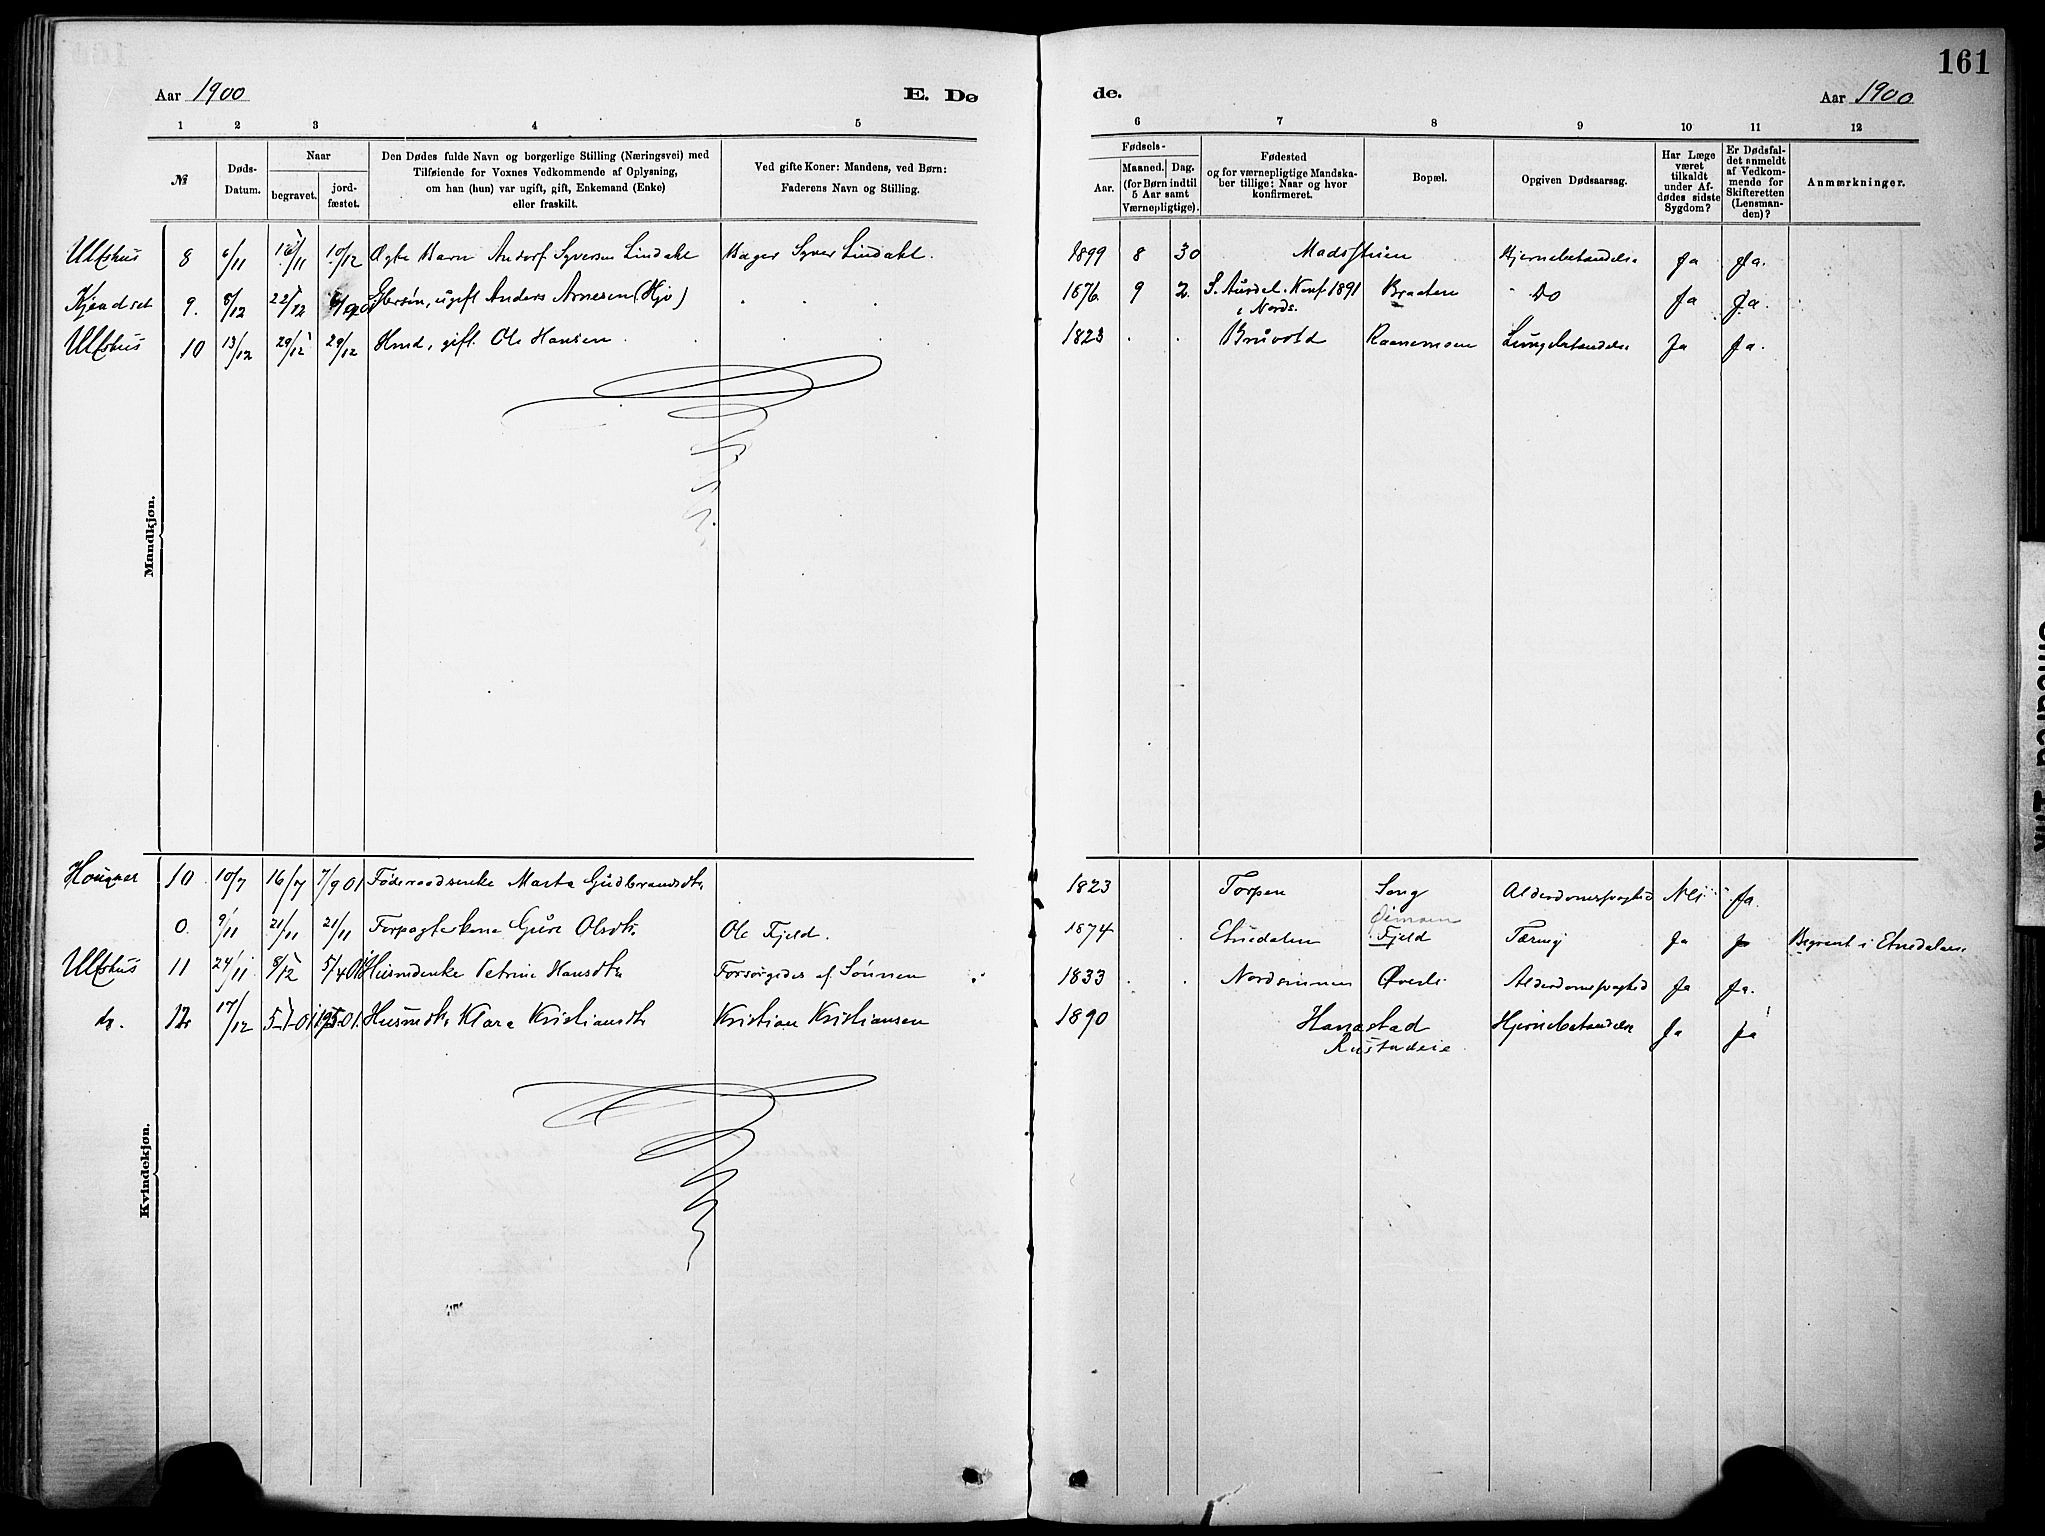 161
Aar 1900 E. Dø de. Aar 1900
1 2 3 4 5 6 7 8 9 10 11 12
№
Døds-Datum.
Naar
begravet.
jord-fæstet.
Den Dødes fulde Navn og borgerlige Stilling (Næringsvei) med
Tilføiende for Voxnes Vedkommende af Oplysning,
om han (hun) var ugift, gift, Enkemand (Enke)
eller fraskilt.
Ved gifte Koner: Mandens, ved Børn:
Faderens Navn og Stilling.
Fødsels-
Aar.
Maaned. Dag.
(for Børn indtil
5 Aar samt
Værnepligtige).
Fødested
og for værnepligtige Mandska-
ber tillige: Naar og hvor
konfirmeret.
Bopæl.
Opgiven Dødsaarsag.
Har Læge
været
tilkaldt
under Af-
dødes sidste
Sygdom?
Er Dødsfal-
det anmeldt
af Vedkom-
mende for
Skifteretten
(Lensman-
den)?
Anmærkninger.
Mandkjøn.
Ulfshus 8 6/11 /11 10/12 Ægte Barn Andorf Syversen Lindahl Bager Syver Lindahl. 1899 8 30 Madsstuen Hjernebetændelse Ja Ja.
9. 8/12 22/12 Gbrsøn, ugift Anders Arnesen 1876 9 2 S. Aurdal. Konf 1891 Braaten Do Ja Ja.
i Nords.
Ulfshus 10 13/12 29/12 29/12 Hmd, gift. Ole Hansen 1823 . . Bruvold Lungebetændelse Ja Ja.
Kvindekjøn.
10 10/7 16/7 7/9 01 Føderaadsenke Marta Gudbrandsdtr 1823 Torpen Song Alderdomssvaghed Nei Ja.
0. 9/11 21/11 21/11 Forpagterkone Guri Olsdtr. Ole Fjeld. 1874 Etnedalen Fjeld Tæring Ja Ja Begravet i Etnedalen
Ulfshus 11 24/11 8/12 5/4 01 Husmdenke Petrine Hansdtr Forsørgedes af Sønnen 1833 . . Nordsinnen Øverli Alderdomssvaghed Ja Ja.
do. 12 17/12 5-1-01 Husmdtr Klara Kristiansdtr Kristian Kristiansen 1890 Hanastad Hjernebetændelse Ja Ja
Rustadeie